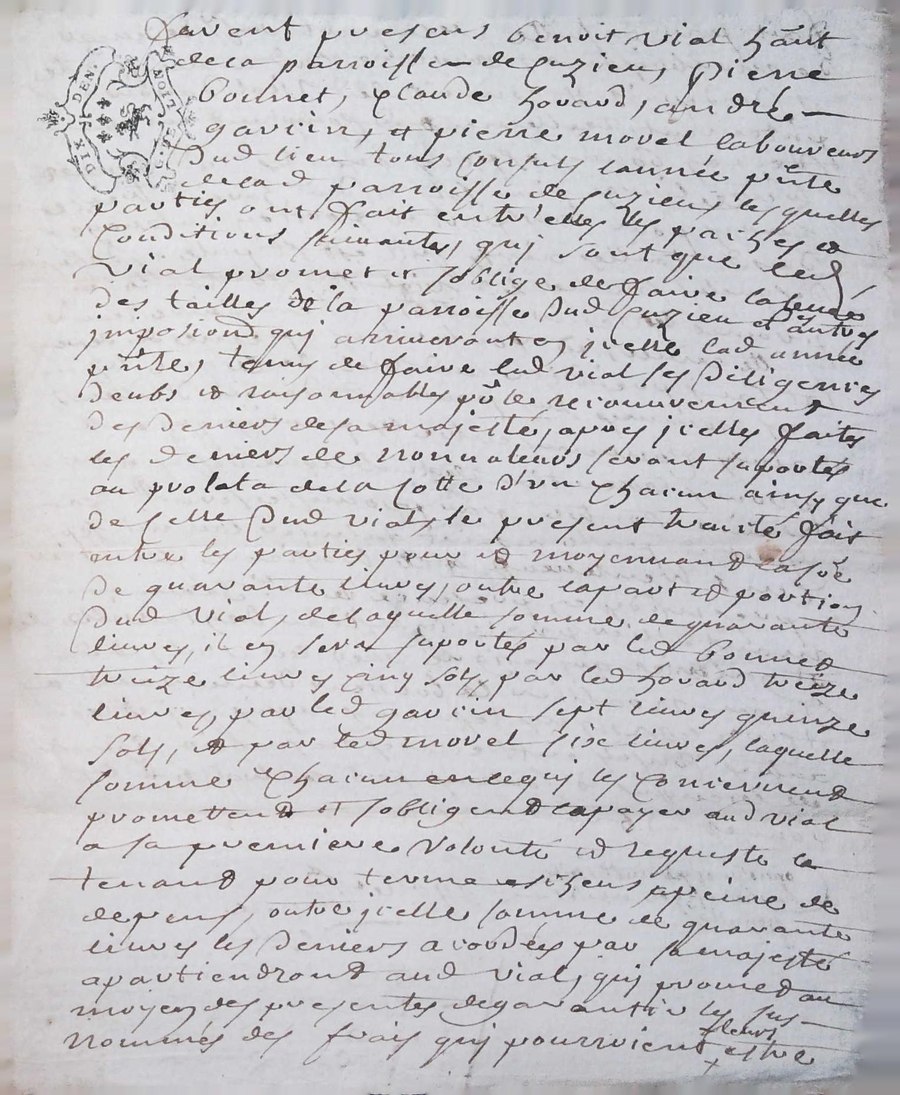 furent presens benoit vial hânt
de la parroisse de cuzieu, pierre
bonnet, claude hovard, andré
gavcin, et pierre movel laboureurs
dud lieu tous consuls l'année pñte
de lad parroisse de Cuzieu lesquelles
parties ont fait entr'elles les paches et
Conditions suivantes, quj sont que led
vial promet et s'oblige de faire la levée
des tailles de la parroisse dud Cuzieu et autres
impositions quj arriveront en jcelle lad année
pñte, tenu de faire led vial les diligences
deubs et raisonnables pr le recouvrement
des deniers de sa majesté, apres jcelles faites
les deniers de nonvaleurs seront suportés
au prolata de la Cotte d'vn chacun ainsy que
de Celle dud vial, le present traité fait
entre les parties pour et moyennand la sõe
de quarante livres, outre la part et portion
dud vial, de laquelle somme de quarante
livres, il en sera suportés par led bonnet
treize livres cinq sols, par led hovard treize
livres, par led gavcin sept livres quinze
sols, et par led movel six livres, laquelle
somme chacun en ce quj les concernend
promettend et s'obligend la payer aud vial
a sa premiere volonté et requeste le
tenand pour terme eschens a peine de
depens, outre jcelle somme de quarante
livres les deniers acordées par sa majesté
apartiendrond aud vial, quj promet au
moyen des presentes de garantir les sus-
nommés des frais quj pourroient leurs estre
DIX DEN.
LION